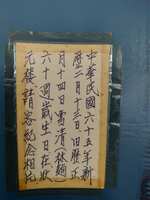 中華民國六十五年新
曆二月十三日、旧曆正
月十四日雪清(林麵)
六十週歲生日在狀
元樓請客紀念相片